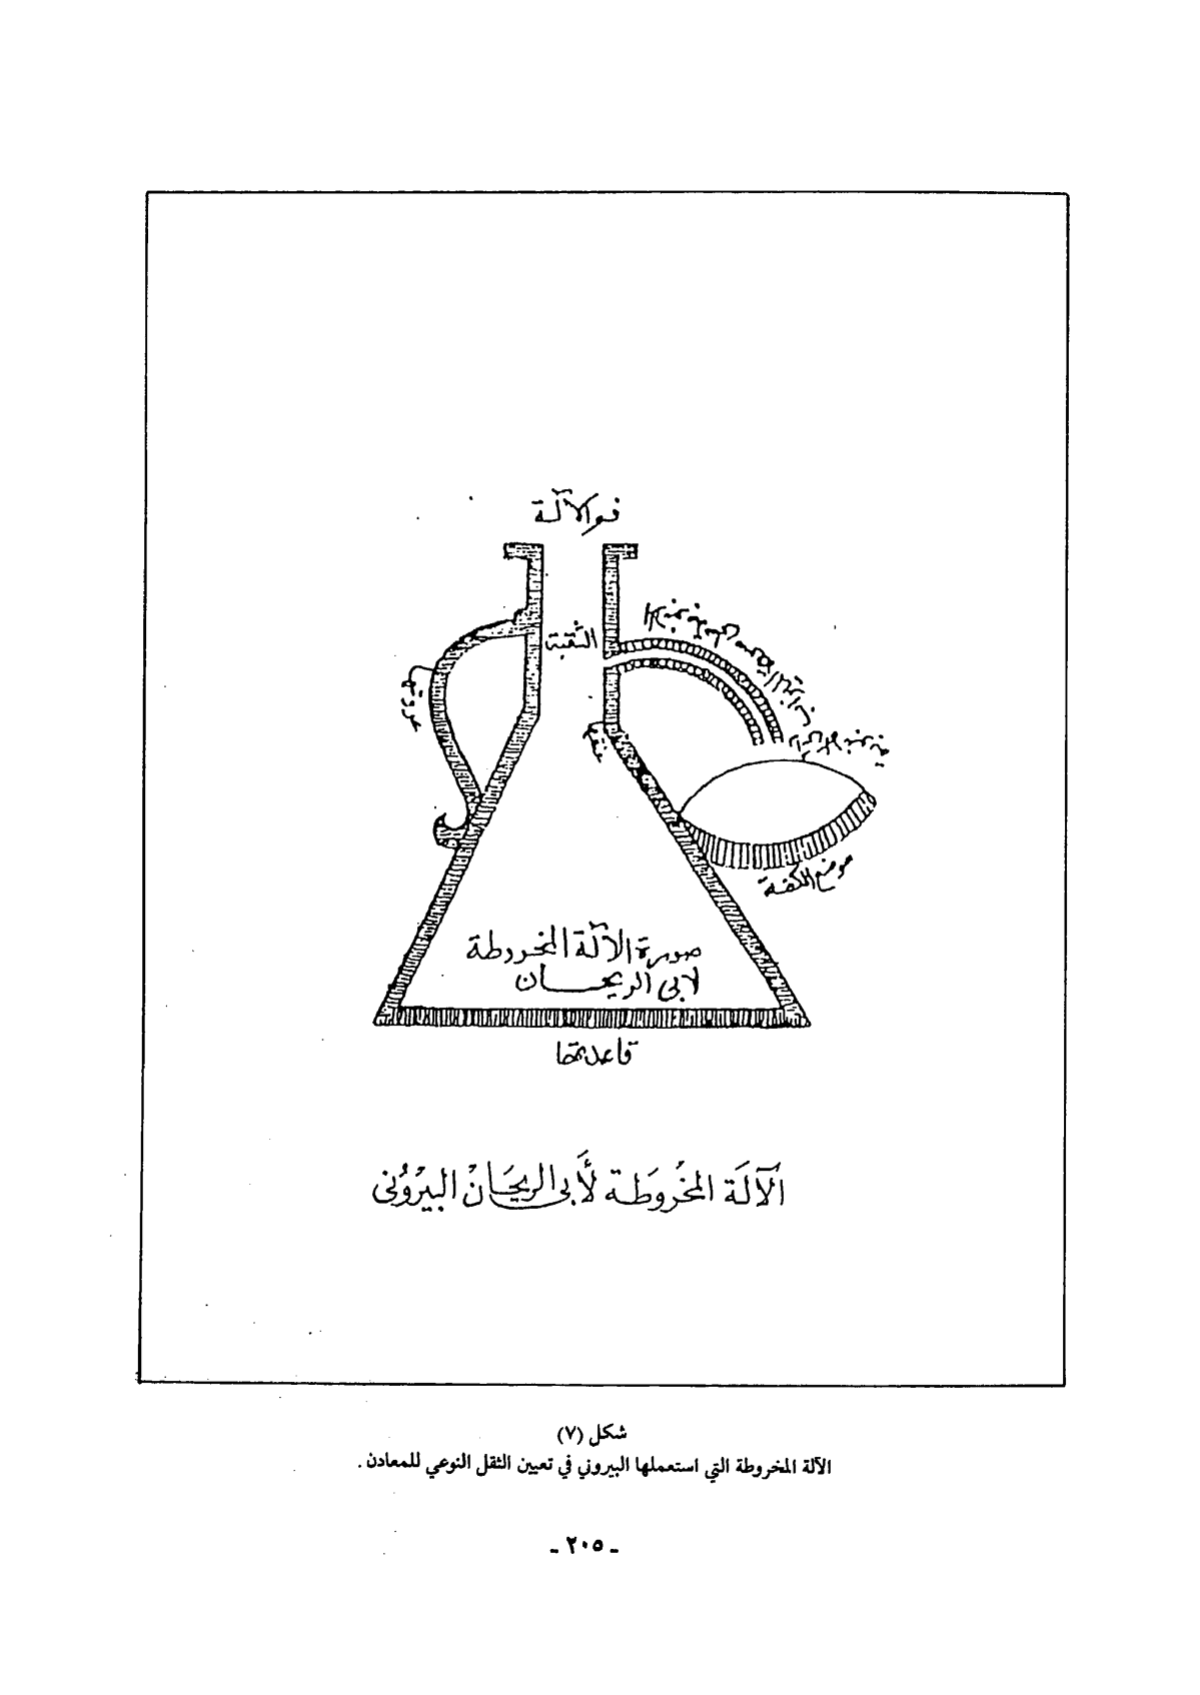 فم الآلة
الثقبة
عروة
عنقها
موضع الكفة
صورة الآلة المخروطة
لابى الريحان
قاعدتها
الآلَة المخْروَطة لأَبى الريحَانْ البيْرُونى
شكل (٧)
الآلة المخروطة التي استعملها البيروني في تعيين الثقل النوعي للمعادن .
ـ ٢٠٥ ـ